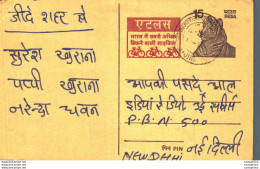 जींद शहर से
सुरेश खुराना
पप्पी खुराना
नरेन्द्र चवन
एटलस
भारत में सबसे अधिक
बिकने वाली साइकिलें
15
भारत INDIA
आपकी पसंद
आल इंडिया रेडियो उर्दू सर्विस
P.B.N. 500
पिन PIN
नई दिल्ली
NEW DELHI